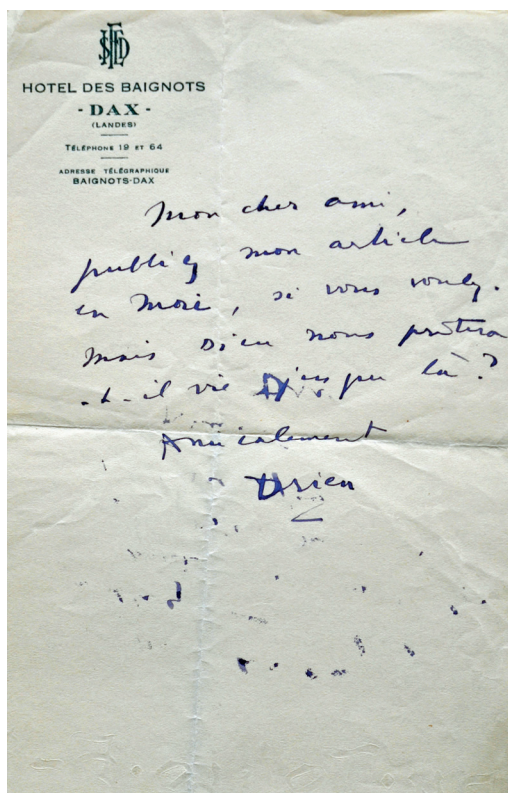 HOTEL DES BAIGNOTS
- DAX -
(LANDES)
TÉLÉPHONE 19 ET 64
ADRESSE TÉLÉGRAPHIQUE
BAIGNOTS-DAX
Mon cher ami,
publiez mon article
en Mars, si vous voulez.
Mais Dieu nous prêtera
-t-il vie jusque là ?
Amicalement
Drieu